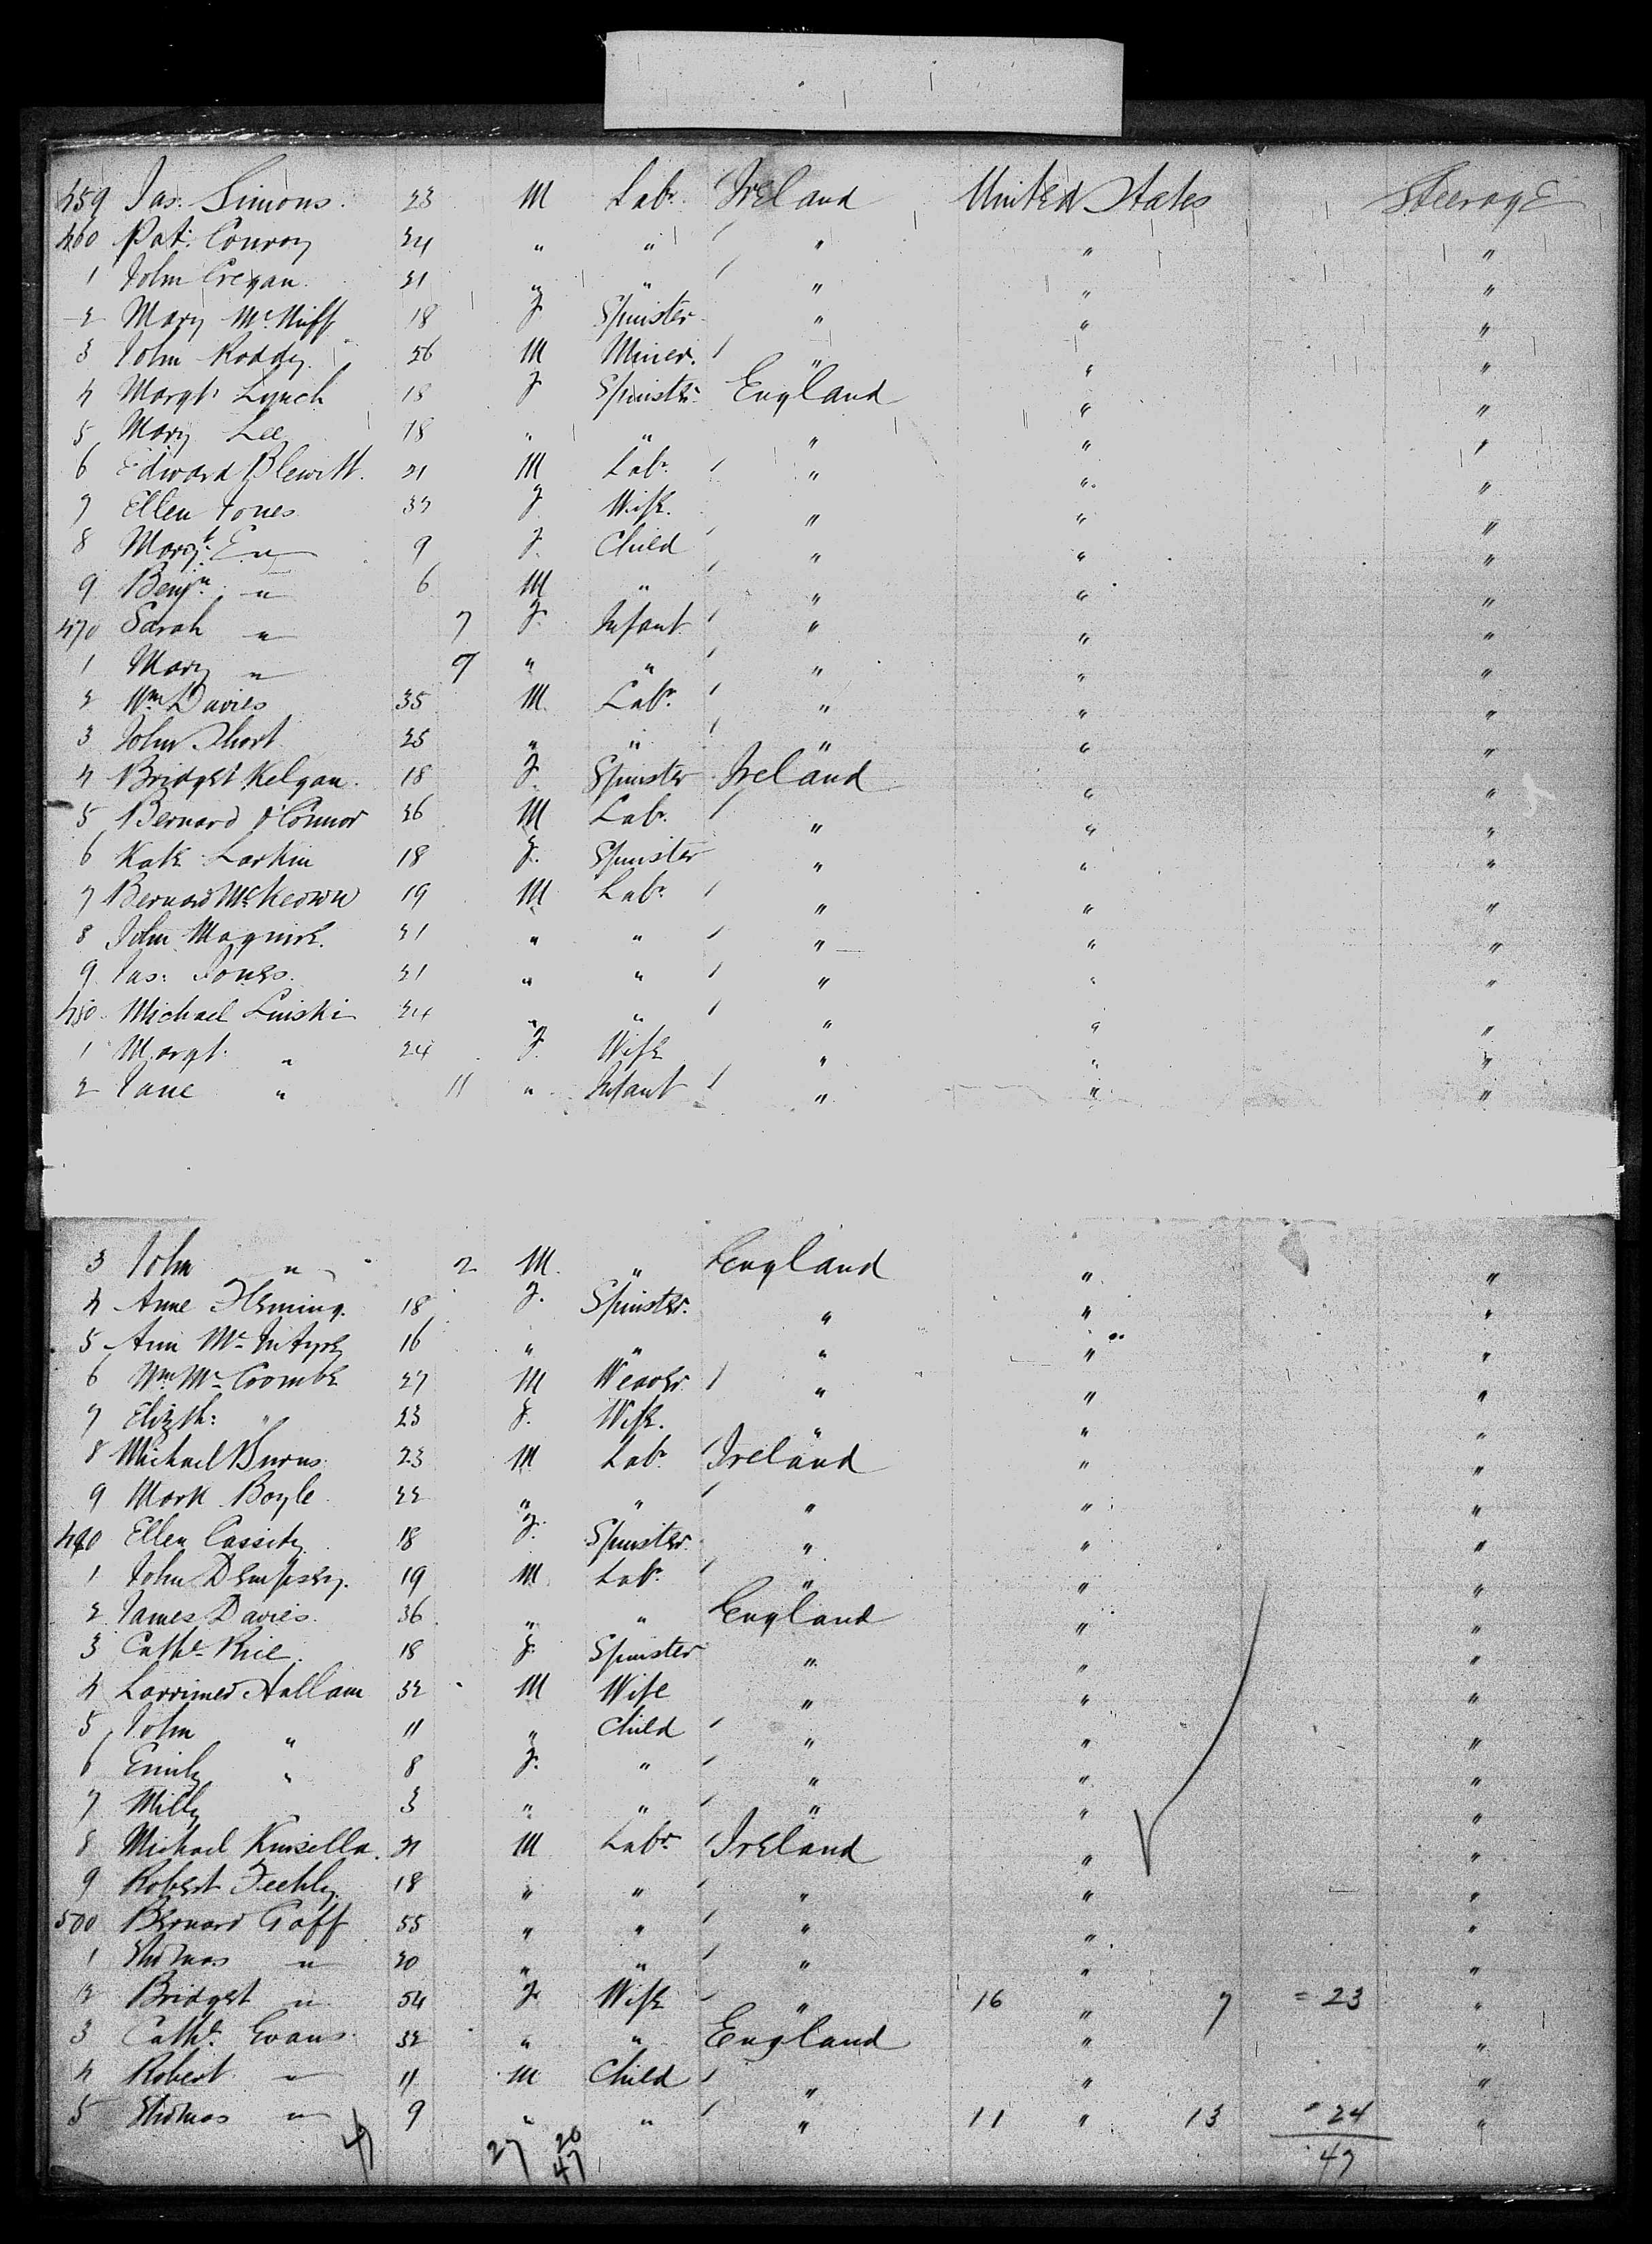 459 Jas. Simons. 23 M Labr. Ireland United States Steerage
460 Pat. Conroy 24 " " " " "
1 John Cregan 21 " " " " "
2 Mary McNiff 18 F. Spinster " " "
3 John Roddy. 26 M Miner. " " "
4 Margt. Lynch 18 F Spinster England " "
5 Mary Lee 18 " " " " "
6 Edward Blewitt. 21 M Labr. " " "
7 Ellen Jones 37 F Wife. " " "
8 Margt. E " 9 F. Child " " "
9 Benjn. " 6 M " " " "
470 Sarah " 7 F. Infant " " "
1 Mary " 9 " " " " "
2 Wm Davies 35 M. Labr. " " "
3 John Short 25 " " " " "
4 Bridget Kelgan. 18 F. Spinster Ireland " "
5 Bernard O'Connor 26 M Labr. " " "
6 Kate Larkin 18 F. Spinster " " "
7 Bernard McKeown 19 M Labr. " " "
8 John Maguire. 21 " " " " "
9 Jas. Jones. 21 " " " " "
480 Michael Linski 24 " " " " "
1 Margt. " 24 F. Wife " " "
2 Jane " 11 " Infant " " "
3 John " 2 M. " England " "
4 Anne Fleming. 18 F. Spinster. " " "
5 Ann McIntyre 16 " " " " "
6 Wm McCoombe 27 M Weaver " " "
7 Elizth: " 23 F. Wife. " " "
8 Michael Burns 23 M Labr. Ireland " "
9 Mark Boyle 22 " " " " "
490 Ellen Cassidy 18 F. Spinster. " " "
1 John Dempsey. 19 M. Labr. " " "
2 James Davies. 36 " " England " "
3 Cathe. Rice. 18 F. Spinster " " "
4 Lorrimer Hallam 32 M Wife " " "
5 John " 11 " Child " " "
6 Emily " 8 F. " " " "
7 Milly 3 " " " " "
8 Michael Kinsella. 21 M Labr. Ireland " "
9 Robert Feehly. 18 " " " " "
500 Bernard Goff 55 " " " " "
1 Thomas " 20 " " " " "
2 Bridget " 54 F. Wife " 16 " 7 = 23 "
3 Cathe. Evans. 32 " " England " "
4 Robert " 11 M Child " " "
5 Thomas " 9 " " " 11 " 13 = 24 "
47 27 20 47
47